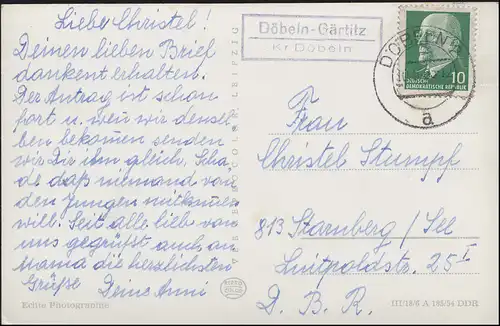 Liebe Christel!
Deinen lieben Brief
dankent erhalten.
Der Antrag ist schon
fort u. wenn wir densel
ben bekommen senden
wir Dir ihn gleich, Scha
de daß niemand von
den Jungen mitkommen
will. Seit alle lieb von
uns gegrüßt auch an
Mama die herzlichsten
Grüße Deine Anni
Echte Photographie
Döbeln-Gärtitz
Kr Döbeln
DÖBELN
a
10
DEUTSCHE
DEMOKRATISCHE REPUBLIK
Frau
Christel Stumpf
813 Starnberg / See
Luitpoldstr. 25 I
D. B. R.
III/18/6 A 185/54 DDR